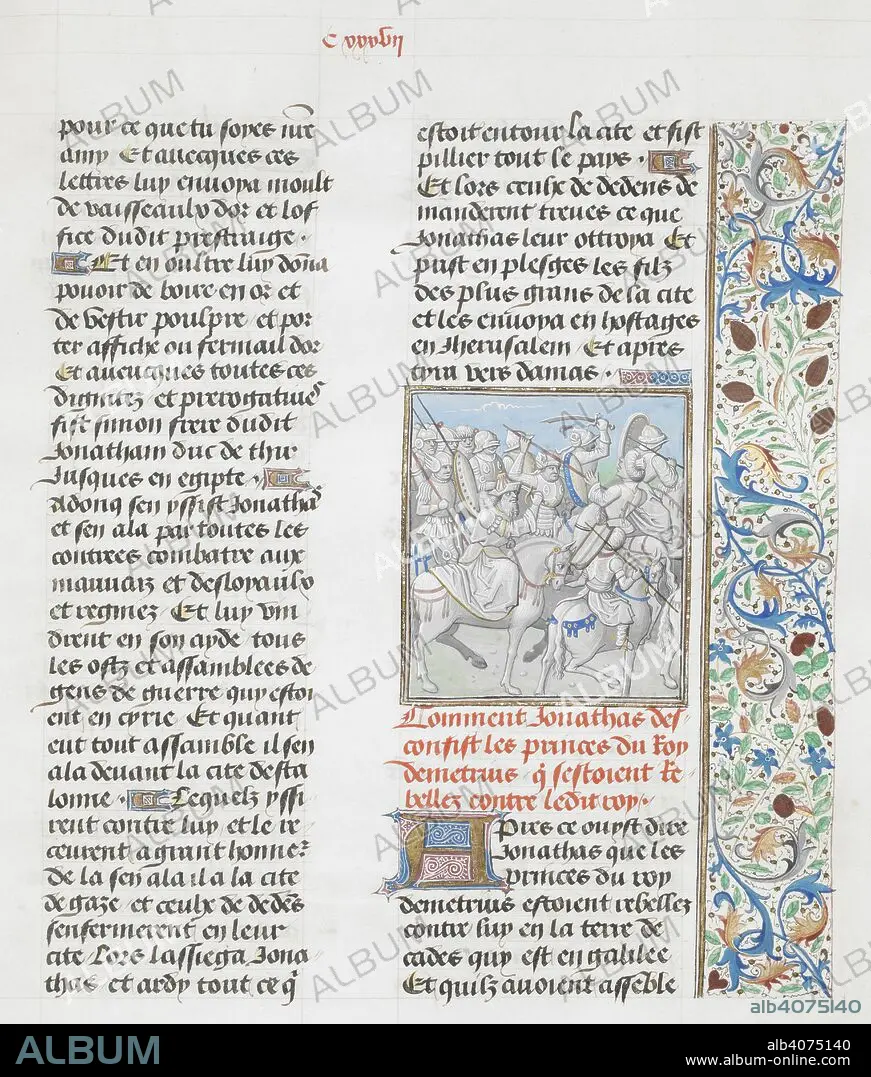 C xxxvii
pour ce que tu soyes nre
amy Et auecques ces
lettres luy enuoya moult
de vaisseaulx dor et lof
fice dudit prestraige.
Et en oultre luy dona
pouoir de boire en or et
de vestir poulpre et por
ter affiche ou fermail dor
Et auecques toutes ces
dignitez et prerogatiues
fist simon frere dudit
Jonatham duc de thir
Jusques en egipte.
Adonq sen yssist Jonathas
et sen ala par toutes les
contrees combatre aux
mauuaiz et desloyaulx
et regniez Et luy vin
drent en son ayde tous
les ostz et assamblees de
gens de guerre quy estoi
ent en cyrie Et quant
eut tout assamble il sen
ala deuant la cite desca
lonne. Lequelz yssi
rent contre luy et le re
ceurent a grant honner
de la sen ala il a la cite
de gaze et ceulx de dedes
senfermerent en leur
cite Lors lassiega Jona
thas et ardy tout ce q
estoit entour la cite et fist
pillier tout le pays.
Et lors ceulx de dedens de
manderent treues ce que
Jonathas leur ottroya Et
prist en plesges les filz
des plus grans de la cite
et les enuoya en hostages
en Jherusalem Et apres
tyra vers damas.
Comment Jonathas des
confist les princes du Roy
demetrius q sestoient Re
bellez contre ledit roy.
Apres ce ouyst dire
Jonathas que les
princes du roy
demetrius estoient rebellez
contre luy en la terre de
cades quy est en galilee
Et quilz auoient asseble
ALBUM
alb4075140
ALBUM
alb4075140
www.album-online.com